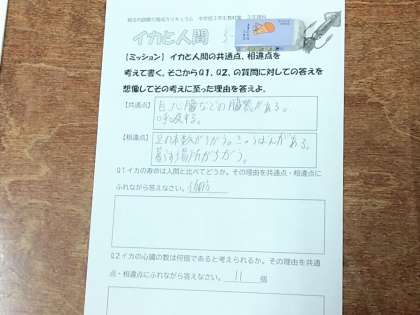 イカと人間
【ミッション】イカと人間の共通点、相違点を
考えて書く。そこからQ1、Q2、の質問に対しての答えを
想像してその考えに至った理由を答えよ。
【共通点】
目、心臓などの臓器がある。
呼吸する。
【相違点】
足の本数がちがう。きゅうばんがある。
暮らす場所がちがう。
Q1.イカの寿命は人間と比べてどうか。その理由を共通点・相違点に
ふれながら答えなさい。
Q2.イカの心臓の数は何個であると考えられるか。その理由を共通
点・相違点にふれながら答えなさい。 11 個